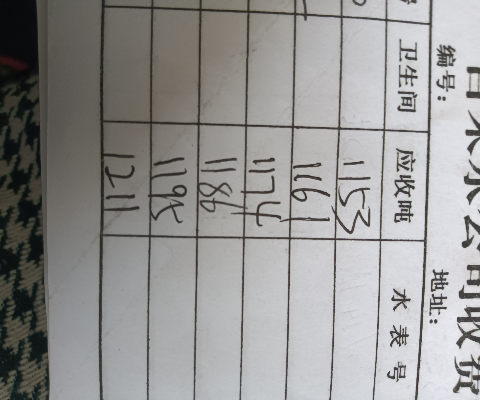 自来水公司收费
编号: 地址:
卫生间 应收吨 水表号
1153
1161
1174
1186
1195
1211